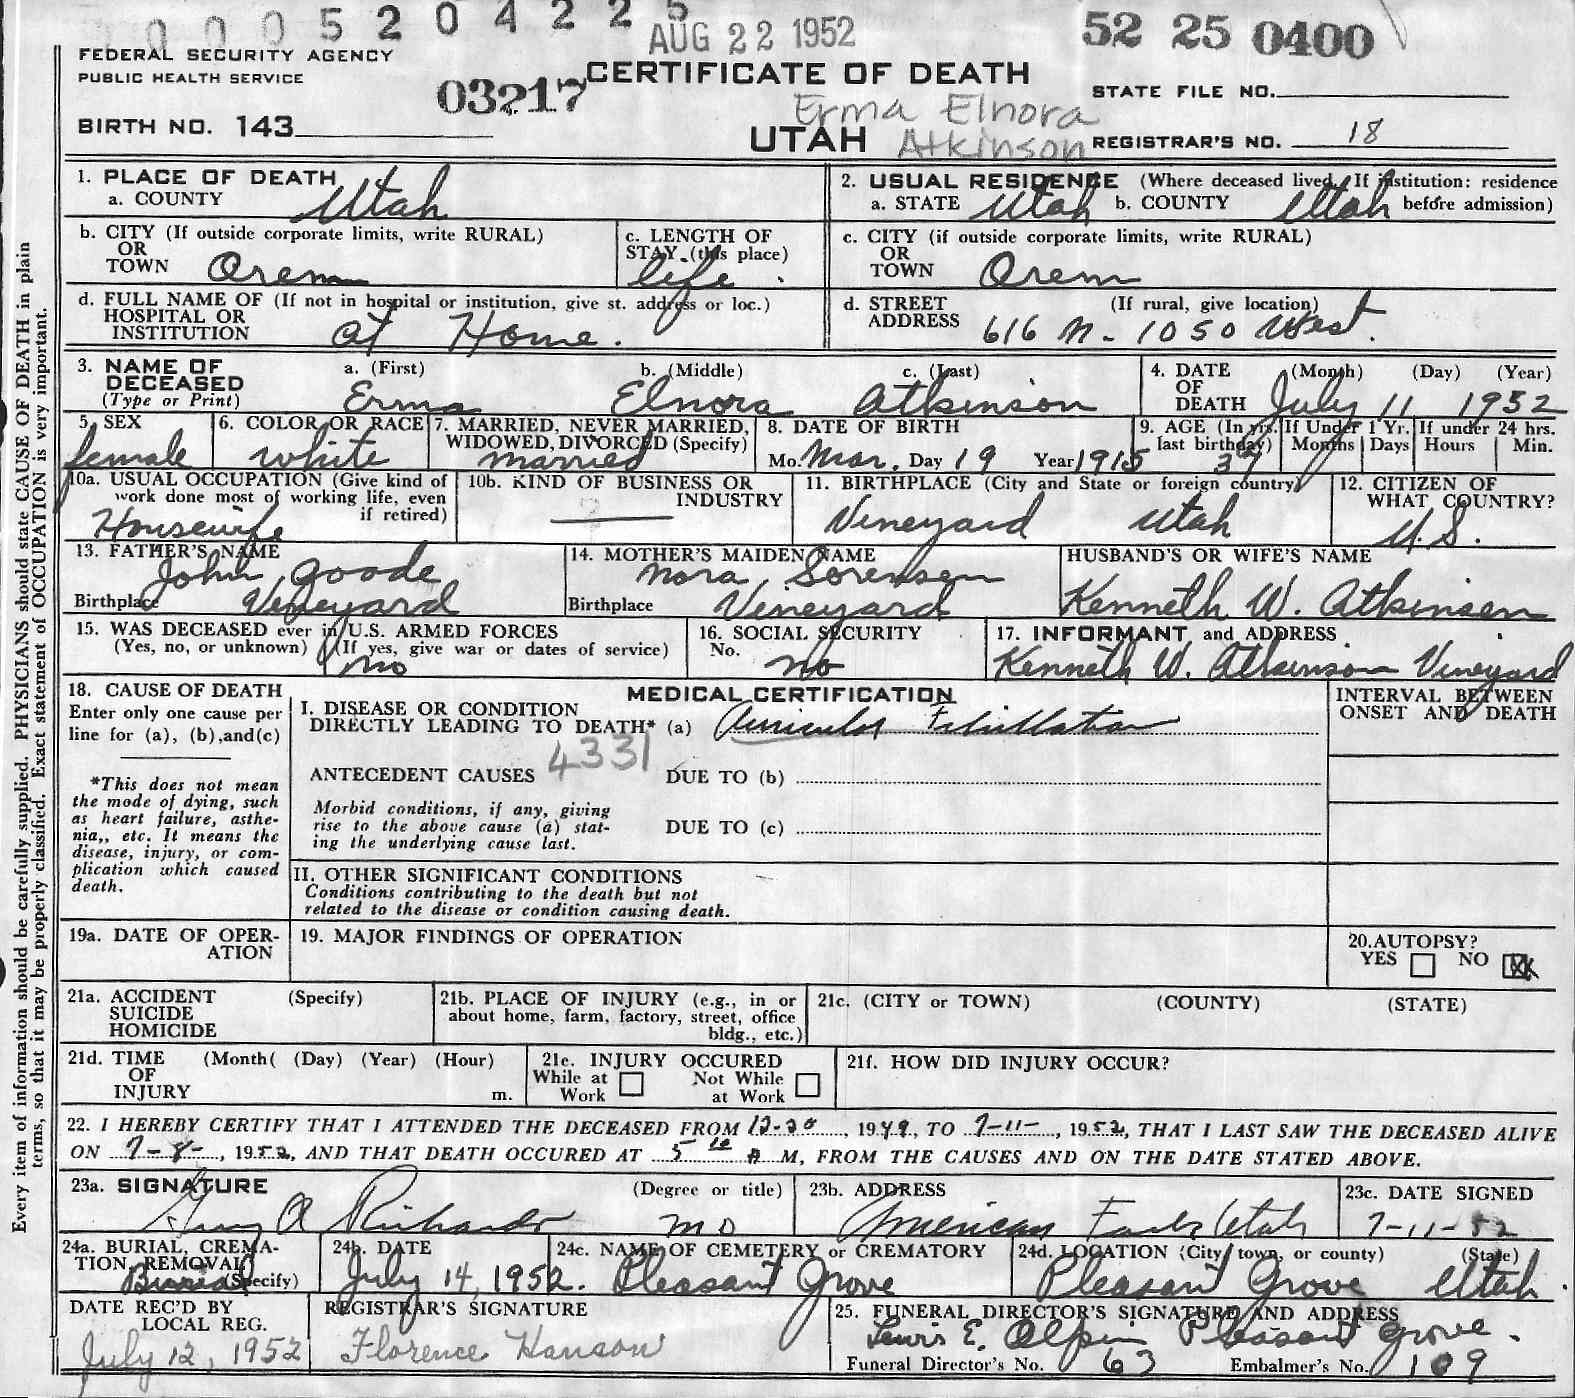 0005204225
AUG 22 1952
52 25 0400
FEDERAL SECURITY AGENCY
PUBLIC HEALTH SERVICE
03217
CERTIFICATE OF DEATH
STATE FILE NO.
Erma Elnora
BIRTH NO. 143
UTAH Atkinson
REGISTRAR'S NO. 18
Every item of information should be carefully supplied. PHYSICIANS should state CAUSE OF DEATH in plain
terms, so that it may be properly classified. Exact statement of OCCUPATION is very important.
1. PLACE OF DEATH
a. COUNTY Utah
2. USUAL RESIDENCE (Where deceased lived. If institution: residence
a. STATE Utah b. COUNTY Utah before admission)
b. CITY (If outside corporate limits, write RURAL)
OR
TOWN Orem
c. LENGTH OF
STAY (this place)
life
c. CITY (if outside corporate limits, write RURAL)
OR
TOWN Orem
d. FULL NAME OF (If not in hospital or institution, give st. address or loc.)
HOSPITAL OR
INSTITUTION at Home.
d. STREET (If rural, give location)
ADDRESS 616 N. 1050 West.
3. NAME OF
DECEASED
(Type or Print)
a. (First) b. (Middle) c. (Last)
Erma Elnora Atkinson
4. DATE (Month) (Day) (Year)
OF
DEATH July 11 1952
5. SEX
female
6. COLOR OR RACE
white
7. MARRIED, NEVER MARRIED,
WIDOWED, DIVORCED (Specify)
married
8. DATE OF BIRTH
Mo. Mar. Day 19 Year 1915
9. AGE (In yrs.
last birthday)
37
If Under 1 Yr.
Months Days
If under 24 hrs.
Hours Min.
10a. USUAL OCCUPATION (Give kind of
work done most of working life, even
if retired)
Housewife
10b. KIND OF BUSINESS OR
INDUSTRY
11. BIRTHPLACE (City and State or foreign country)
Vineyard Utah
12. CITIZEN OF
WHAT COUNTRY?
U.S.
13. FATHER'S NAME
John Goode
Birthplace Vineyard
14. MOTHER'S MAIDEN NAME
Nora Sorensen
Birthplace Vineyard
HUSBAND'S OR WIFE'S NAME
Kenneth W. Atkinson
15. WAS DECEASED ever in U.S. ARMED FORCES
(Yes, no, or unknown) (If yes, give war or dates of service)
no
16. SOCIAL SECURITY
No. no
17. INFORMANT and ADDRESS
Kenneth W. Atkinson Vineyard
18. CAUSE OF DEATH
Enter only one cause per
line for (a), (b), and (c)
*This does not mean
the mode of dying, such
as heart failure, asthe-
nia,, etc. It means the
disease, injury, or com-
plication which caused
death.
MEDICAL CERTIFICATION
I. DISEASE OR CONDITION
DIRECTLY LEADING TO DEATH* (a) Auricular Fibrillation
4331
ANTECEDENT CAUSES DUE TO (b)
Morbid conditions, if any, giving
rise to the above cause (a) stat-
ing the underlying cause last.
DUE TO (c)
II. OTHER SIGNIFICANT CONDITIONS
Conditions contributing to the death but not
related to the disease or condition causing death.
INTERVAL BETWEEN
ONSET AND DEATH
19a. DATE OF OPER-
ATION
19. MAJOR FINDINGS OF OPERATION
20. AUTOPSY?
YES NO
21a. ACCIDENT (Specify)
SUICIDE
HOMICIDE
21b. PLACE OF INJURY (e.g., in or
about home, farm, factory, street, office
bldg., etc.)
21c. (CITY or TOWN) (COUNTY) (STATE)
21d. TIME (Month( (Day) (Year) (Hour)
OF
INJURY m.
21e. INJURY OCCURED
While at Work
Not While at Work
21f. HOW DID INJURY OCCUR?
22. I HEREBY CERTIFY THAT I ATTENDED THE DECEASED FROM 12-20, 1949, TO 7-11-, 1952, THAT I LAST SAW THE DECEASED ALIVE
ON 7-8-, 1952, AND THAT DEATH OCCURED AT 5 10 A M, FROM THE CAUSES AND ON THE DATE STATED ABOVE.
23a. SIGNATURE (Degree or title)
Guy A Richards MD
23b. ADDRESS
American Fork Utah
23c. DATE SIGNED
7-11-52
24a. BURIAL, CREMA-
TION, REMOVAL
(Specify)
Burial
24b. DATE
July 14, 1952.
24c. NAME OF CEMETERY or CREMATORY
Pleasant Grove
24d. LOCATION (City, town, or county) (State)
Pleasant Grove Utah.
DATE REC'D BY
LOCAL REG.
July 12, 1952
REGISTRAR'S SIGNATURE
Florence Hanson
25. FUNERAL DIRECTOR'S SIGNATURE AND ADDRESS
Lewis E. Olpin Pleasant Grove.
Funeral Director's No. 63 Embalmer's No. 109